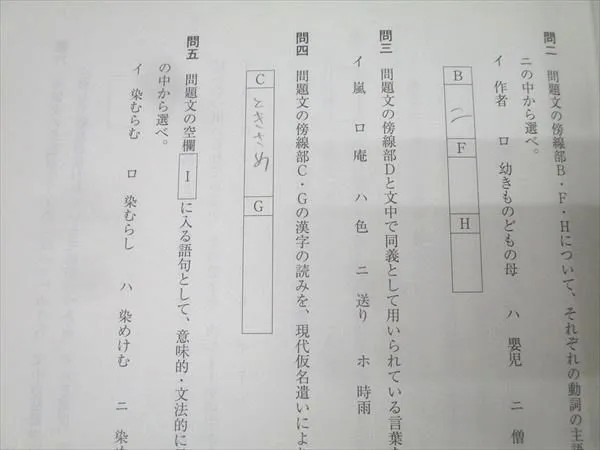 問二 問題文の傍線部B・F・Hについて、それぞれの動詞の主語
ニの中から選べ。
イ 作者 ロ 幼きものどもの母 ハ 嬰児 ニ 僧
B ニ F H
問三 問題文の傍線部Dと文中で同義として用いられている言葉
イ 嵐 ロ 庵 ハ 色 ニ 送り ホ 時雨
問四 問題文の傍線部C・Gの漢字の読みを、現代仮名遣いによ
C ときさめ G
問五 問題文の空欄 I に入る語句として、意味的・文法的に
の中から選べ。
イ 染むらむ ロ 染むらし ハ 染めけむ ニ 染め